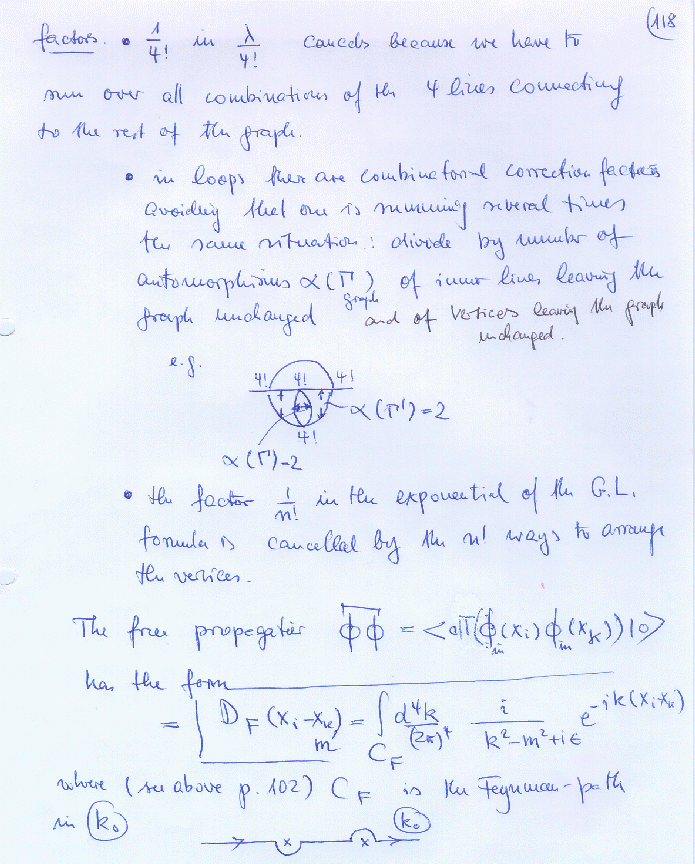 118
factors. • 1/4! in λ/4! cancels because we have to
sum over all combinations of the 4 lines connecting
to the rest of the graph.
• in loops there are combinatorial correction factors
avoiding that one is summing several times
the same situation: divide by number of
automorphisms α(Γ) of inner lines leaving the
graph
graph unchanged and of vertices leaving the graph
unchanged.
e.g.
4! 4! 4!
α(Γ)=2
4!
α(Γ)=2
• the factor 1/n! in the exponential of the G.L.
formula is cancelled by the n! ways to arrange
the vertices.
The free propagator ϕϕ = <0|T(ϕ_in(x_i) ϕ_in(x_k))|0>
has the form
= D_F(x_i-x_k)_m = ∫_{C_F} d⁴k/(2π)⁴ i/(k²-m²+iε) e^{-ik(x_i-x_k)}
where (see above p. 102) C_F is the Feynman-path
in k₀
x x k₀